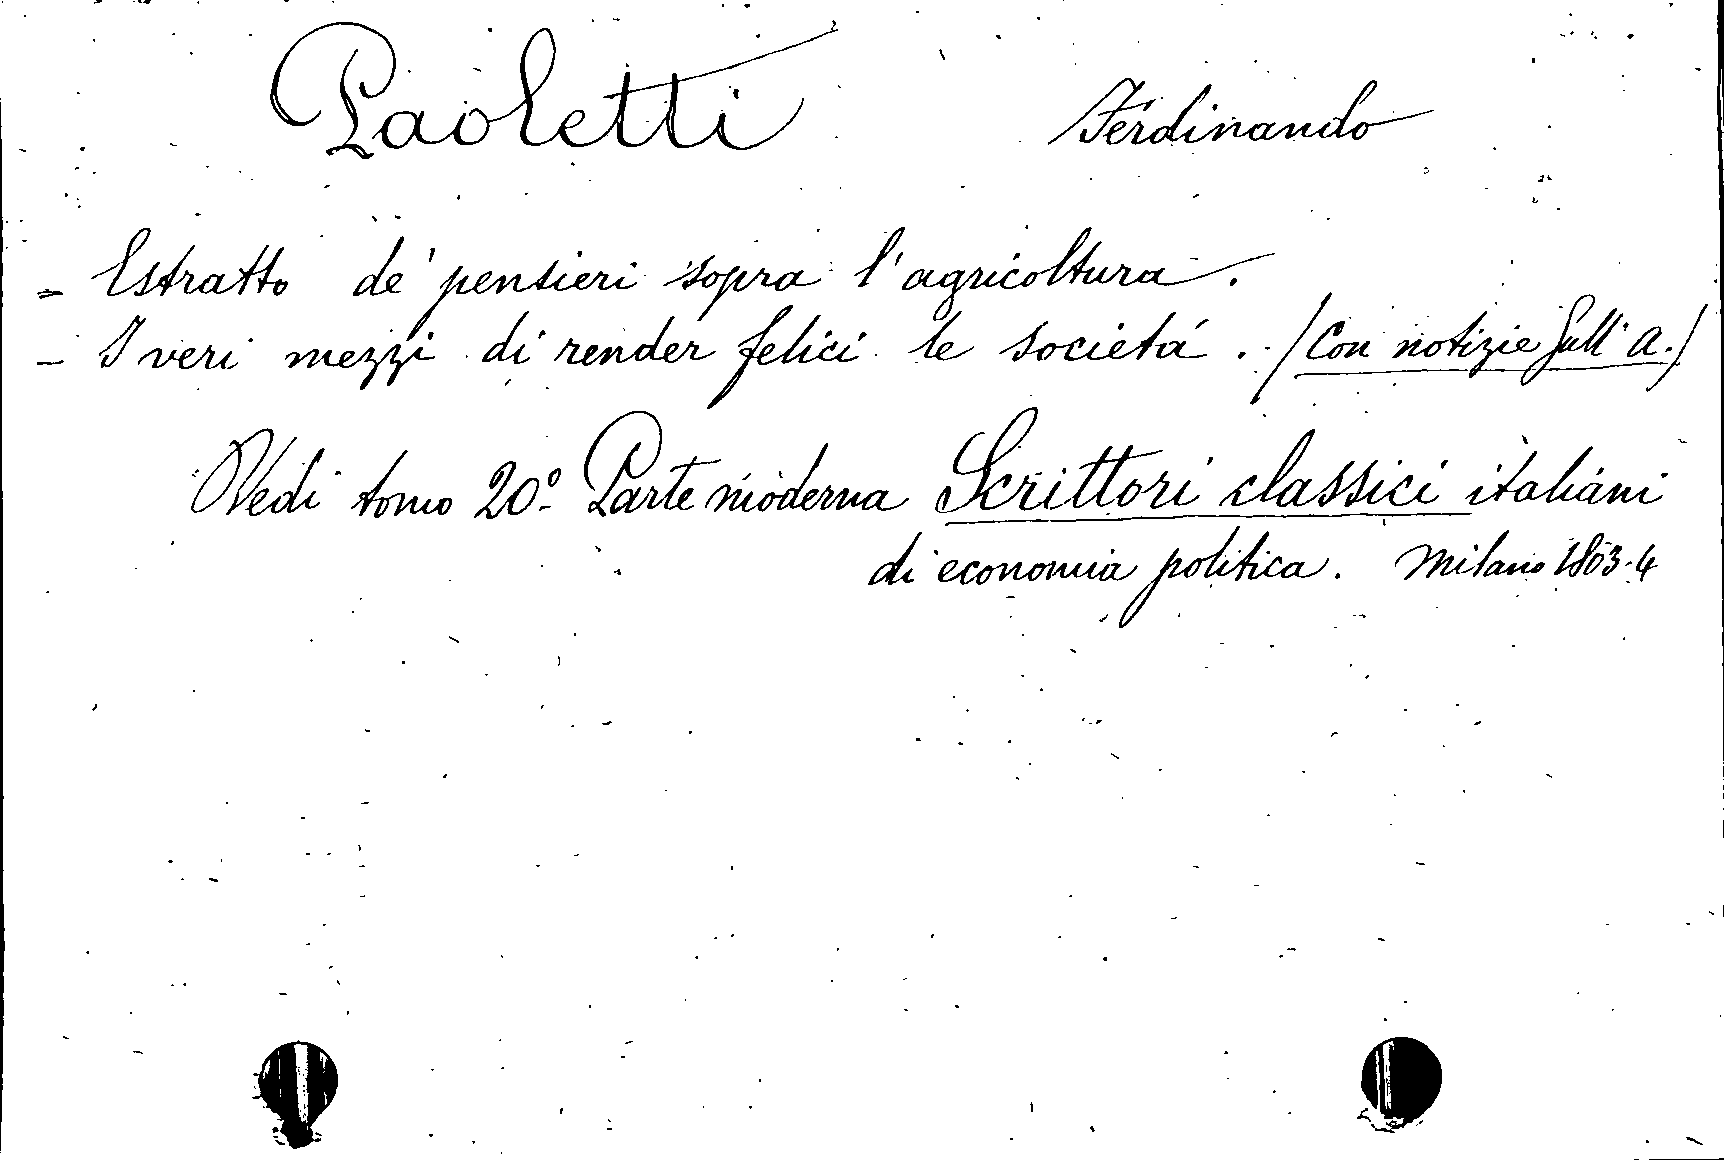 Paoletti Ferdinando
- Estratto de' pensieri sopra l'agricoltura.
- I veri mezzi di render felici le societá. (Con notizie sull'A.)
Vedi tomo 20º Parte moderna Scrittori classici italiani
di economia politica. Milano 1803-4